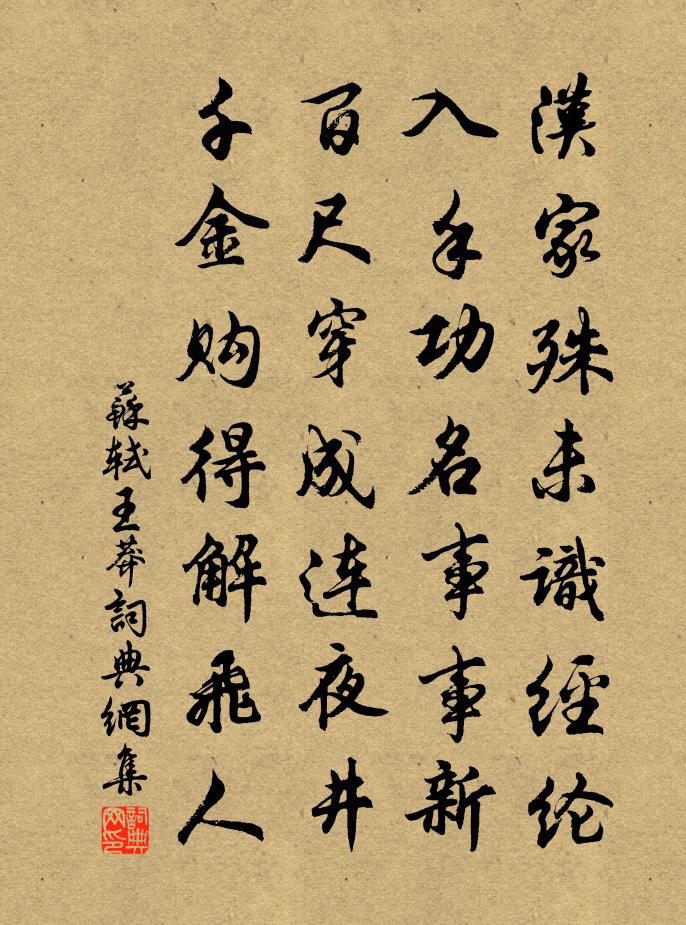 漢家殊未識經纶
入手功名事事新
百尺穿成連夜井
千金购得解飛人
蘇軾王莽詞典網集
詞典網印